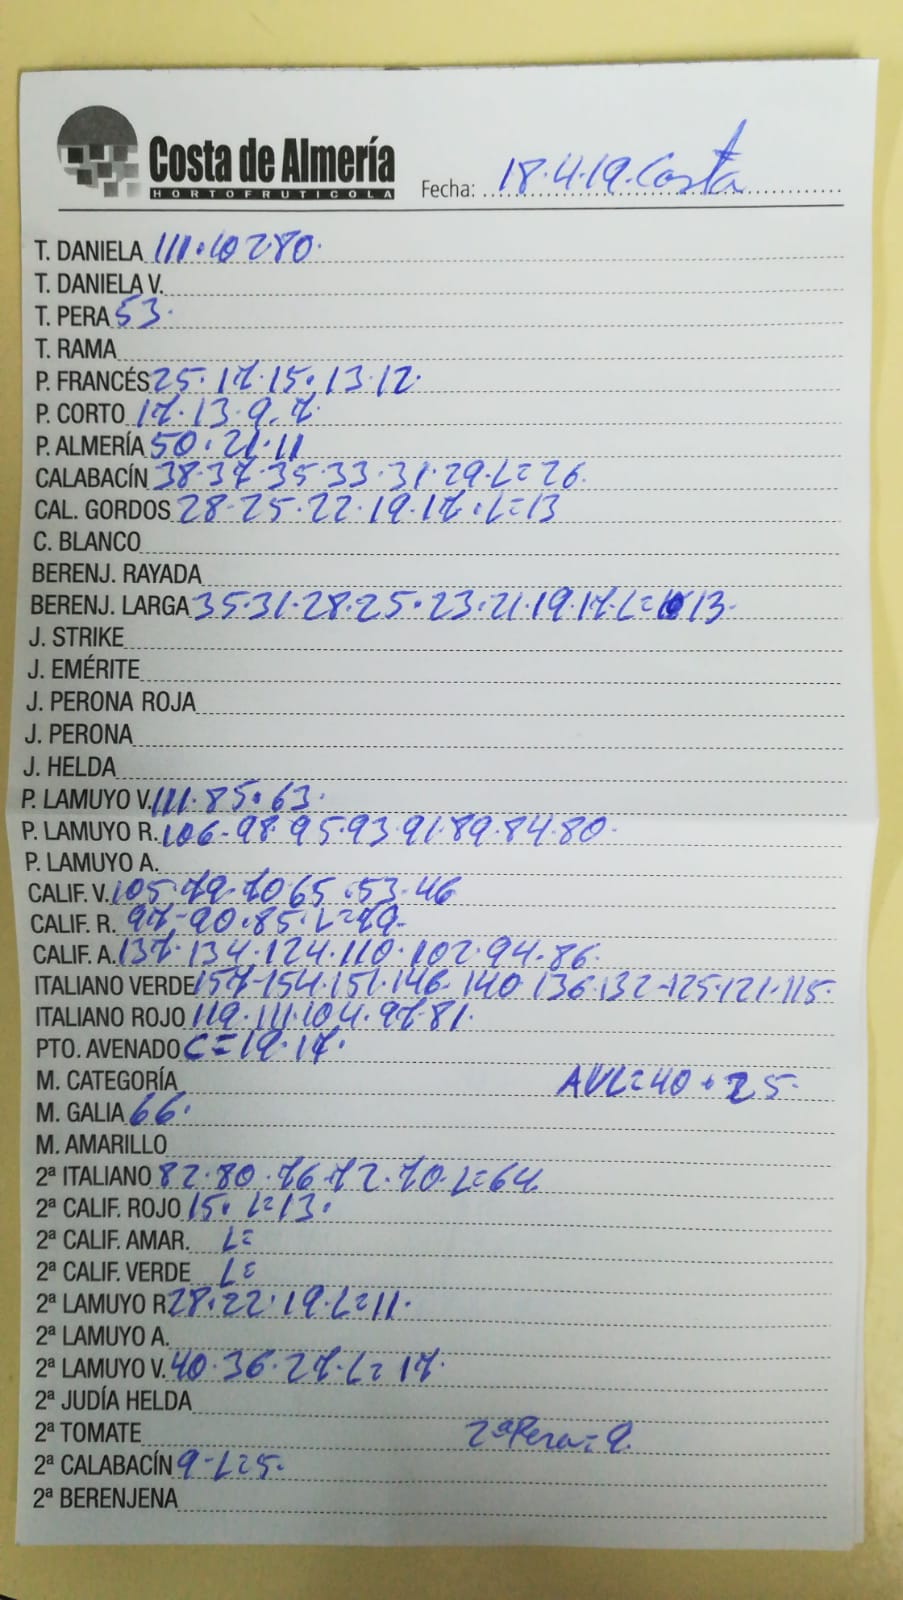 Costa de Almería
HORTOFRUTICOLA
Fecha: 18.4.19. Costa
T. DANIELA 111.102 80.
T. DANIELA V.
T. PERA 53.
T. RAMA
P. FRANCÉS 25.17.15.13.12.
P. CORTO 17.13.9.7.
P. ALMERÍA 50.21.11
CALABACÍN 38.37.35.33.31.29.L=26.
CAL. GORDOS 28-25.22.19.17.L=13
C. BLANCO
BERENJ. RAYADA
BERENJ. LARGA 35.31.28.25.23.21.19.17.L=13.
J. STRIKE
J. EMÉRITE
J. PERONA ROJA
J. PERONA
J. HELDA
P. LAMUYO V. 111.85.63.
P. LAMUYO R. 106-98.95.93.91.89.84.80.
P. LAMUYO A.
CALIF. V. 105.79.70 65.53.46
CALIF. R. 97-90.85.L=79.
CALIF. A. 137.134.124.110.102.94.86.
ITALIANO VERDE 157-154.151.146.140.136.132-125.121.115.
ITALIANO ROJO 119.111.104.97.81.
PTO. AVENADO C=19.17.
M. CATEGORÍA
AVL=40.25.
M. GALIA 66.
M. AMARILLO
2ª ITALIANO 82.80.76.72.70.L=64
2ª CALIF. ROJO 15. L=13.
2ª CALIF. AMAR. L=
2ª CALIF. VERDE L=
2ª LAMUYO R 28.22.19.L=11.
2ª LAMUYO A.
2ª LAMUYO V. 40.36.27.L=17.
2ª JUDÍA HELDA
2ª TOMATE 2ª Pera=9.
2ª CALABACÍN 9-L=5.
2ª BERENJENA